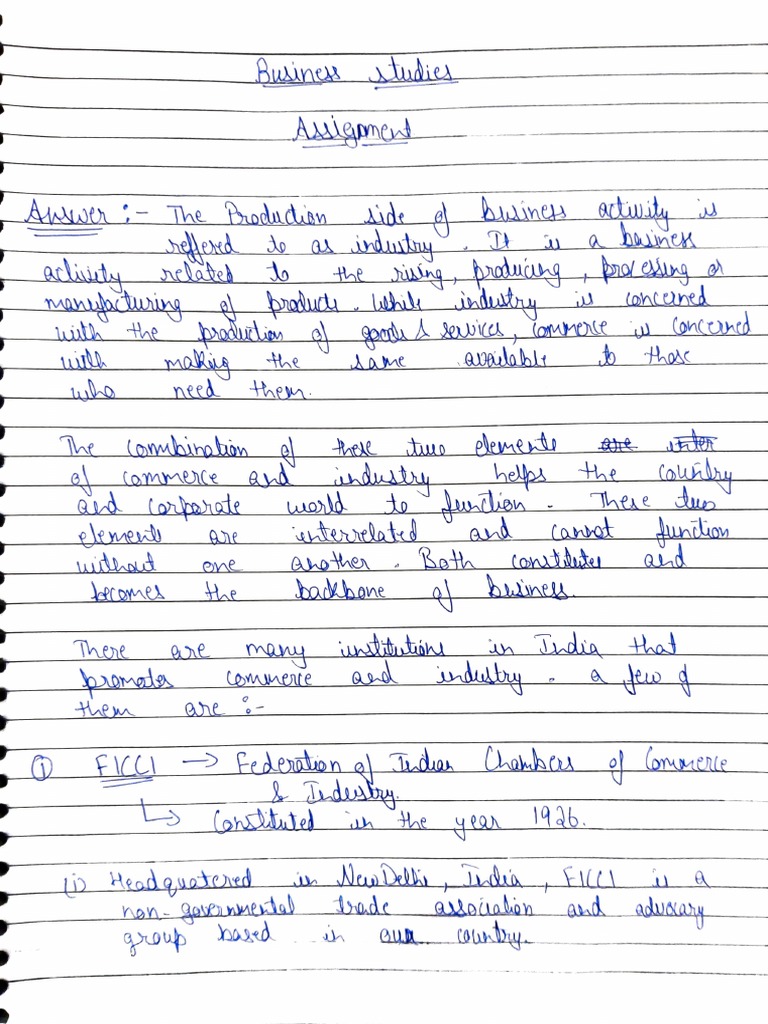 Business studies
Assignment
Answer :- The Production side of business activity is
reffered to as industry. It is a business
activity related to the rising, producing, processing or
manufacturing of products. While industry is concerned
with the production of goods & services, commerce is concerned
with making the same available to those
who need them.
The combination of these two elements are inter
of commerce and industry helps the country
and corporate world to function. These two
elements are interrelated and cannot function
without one another. Both constitutes and
becomes the backbone of business.
There are many institutions in India that
promotes commerce and industry. a few of
them are :-
① FICCI → Federation of Indian Chambers of Commerce
& Industry.
↳ Constituted in the year 1926.
(i) Headquatered in New Delhi, India, FICCI is a
non-governmental trade association and advocary
group based in our country.